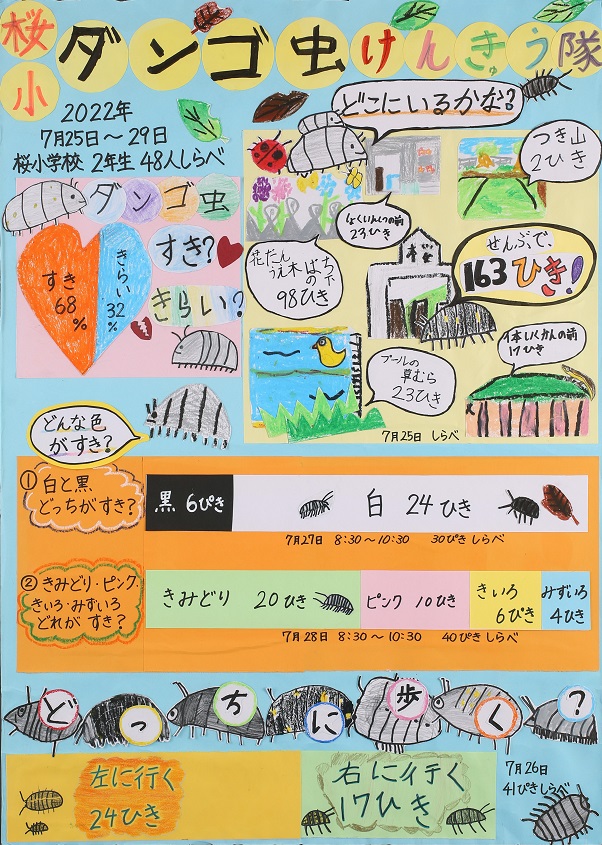 桜小
ダンゴ虫けんきゅう隊
2022年
7月25日～29日
桜小学校 2年生 48人しらべ
ダンゴ虫
すき?
きらい?
すき
68
%
きらい
32
%
どこにいるかな?
つき山
2ひき
しょくいんしつの前
23ひき
花だん
うえ木ばち
の下
98ひき
桜
ぜんぶで、
163ひき!
プールの
草むら
23ひき
1本しいくかんの前
17ひき
7月25日 しらべ
どんな色
がすき?
①白と黒
どっちがすき?
黒 6ぴき
白 24ひき
7月27日 8:30～10:30 30ぴきしらべ
②きみどり・ピンク
きいろ・みずいろ
どれが すき?
きみどり 20ひき
ピンク 10ひき
きいろ
6ぴき
みずいろ
4ひき
7月28日 8:30～10:30 40ぴきしらべ
どっちに歩く?
左に行く
24ひき
右に行く
17ひき
7月26日
41ぴきしらべ